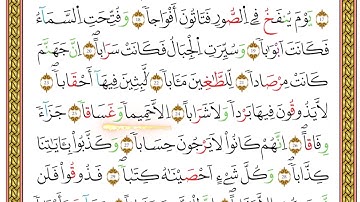 يَوْمَ يُنفَخُ فِي الصُّورِ فَتَأْتُونَ أَفْوَاجًا ۝ وَفُتِحَتِ السَّمَآءُ
فَكَانَتْ أَبْوَابًا ۝ وَسُيِّرَتِ الْجِبَالُ فَكَانَتْ سَرَابًا ۝ إِنَّ جَهَنَّمَ
كَانَتْ مِرْصَادًا ۝ لِّلطَّٰغِينَ مَـَٔابًا ۝ لَّٰبِثِينَ فِيهَآ أَحْقَابًا ۝
لَّا يَذُوقُونَ فِيهَا بَرْدًا وَلَا شَرَابًا ۝ إِلَّا حَمِيمًا وَغَسَّاقًا ۝ جَزَآءً
وِفَاقًا ۝ إِنَّهُمْ كَانُوا۟ لَا يَرْجُونَ حِسَابًا ۝ وَكَذَّبُوا۟ بِـَٔايَٰتِنَا
كِذَّابًا ۝ وَكُلَّ شَىْءٍ أَحْصَيْنَٰهُ كِتَٰبًا ۝ فَذُوقُوا۟ فَلَن